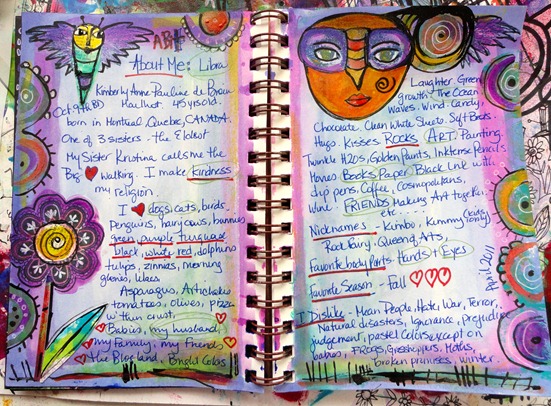 About Me: Libra
Kimberly Anne Pauline de
Oct 9th
45 yrs old.
born in Montreal Quebec, CANADA.
One of 3 sisters - the Eldest
My Sister Kristina calls me the
Big walking. I make kindness
my religion
I dogs, cats, birds,
Penguins, hairy cows, bunnies,
green, purple, turquoise
black, white, red, dolphins
tulips, zinnias, morning
glories, lilacs
Asparagus, Artichokes
tomatoes, olives, pizza
w thin crust,
Babies, my husband,
my Family, my friends
the Blog land, Bright Colors
Laughter Green
growth The Ocean
Waves. Wind Candy,
Chocolate. Clean White Sheets. Soft Bras.
Hugs. Kisses ROCKS, ART. Painting.
Twinkle H2Os, Golden Paints, Inktense Pencils.
Movies Books Paper Black Ink with
dip pens, Coffee, Cosmopolitans,
Wine. FRIENDS Making Art together,
etc
Nicknames - Kimbo, Kummy
Rock Fairy. Queen
Favorite body parts Hands + Eyes
favorite Season - Fall
April 2011
I Dislike - Mean People, Hate, War, Terror,
Natural disasters, Ignorance, Prejudice
judgement, pastel colors except on
babies, FROGS, Grasshoppers, Moths,
broken promises, winter.